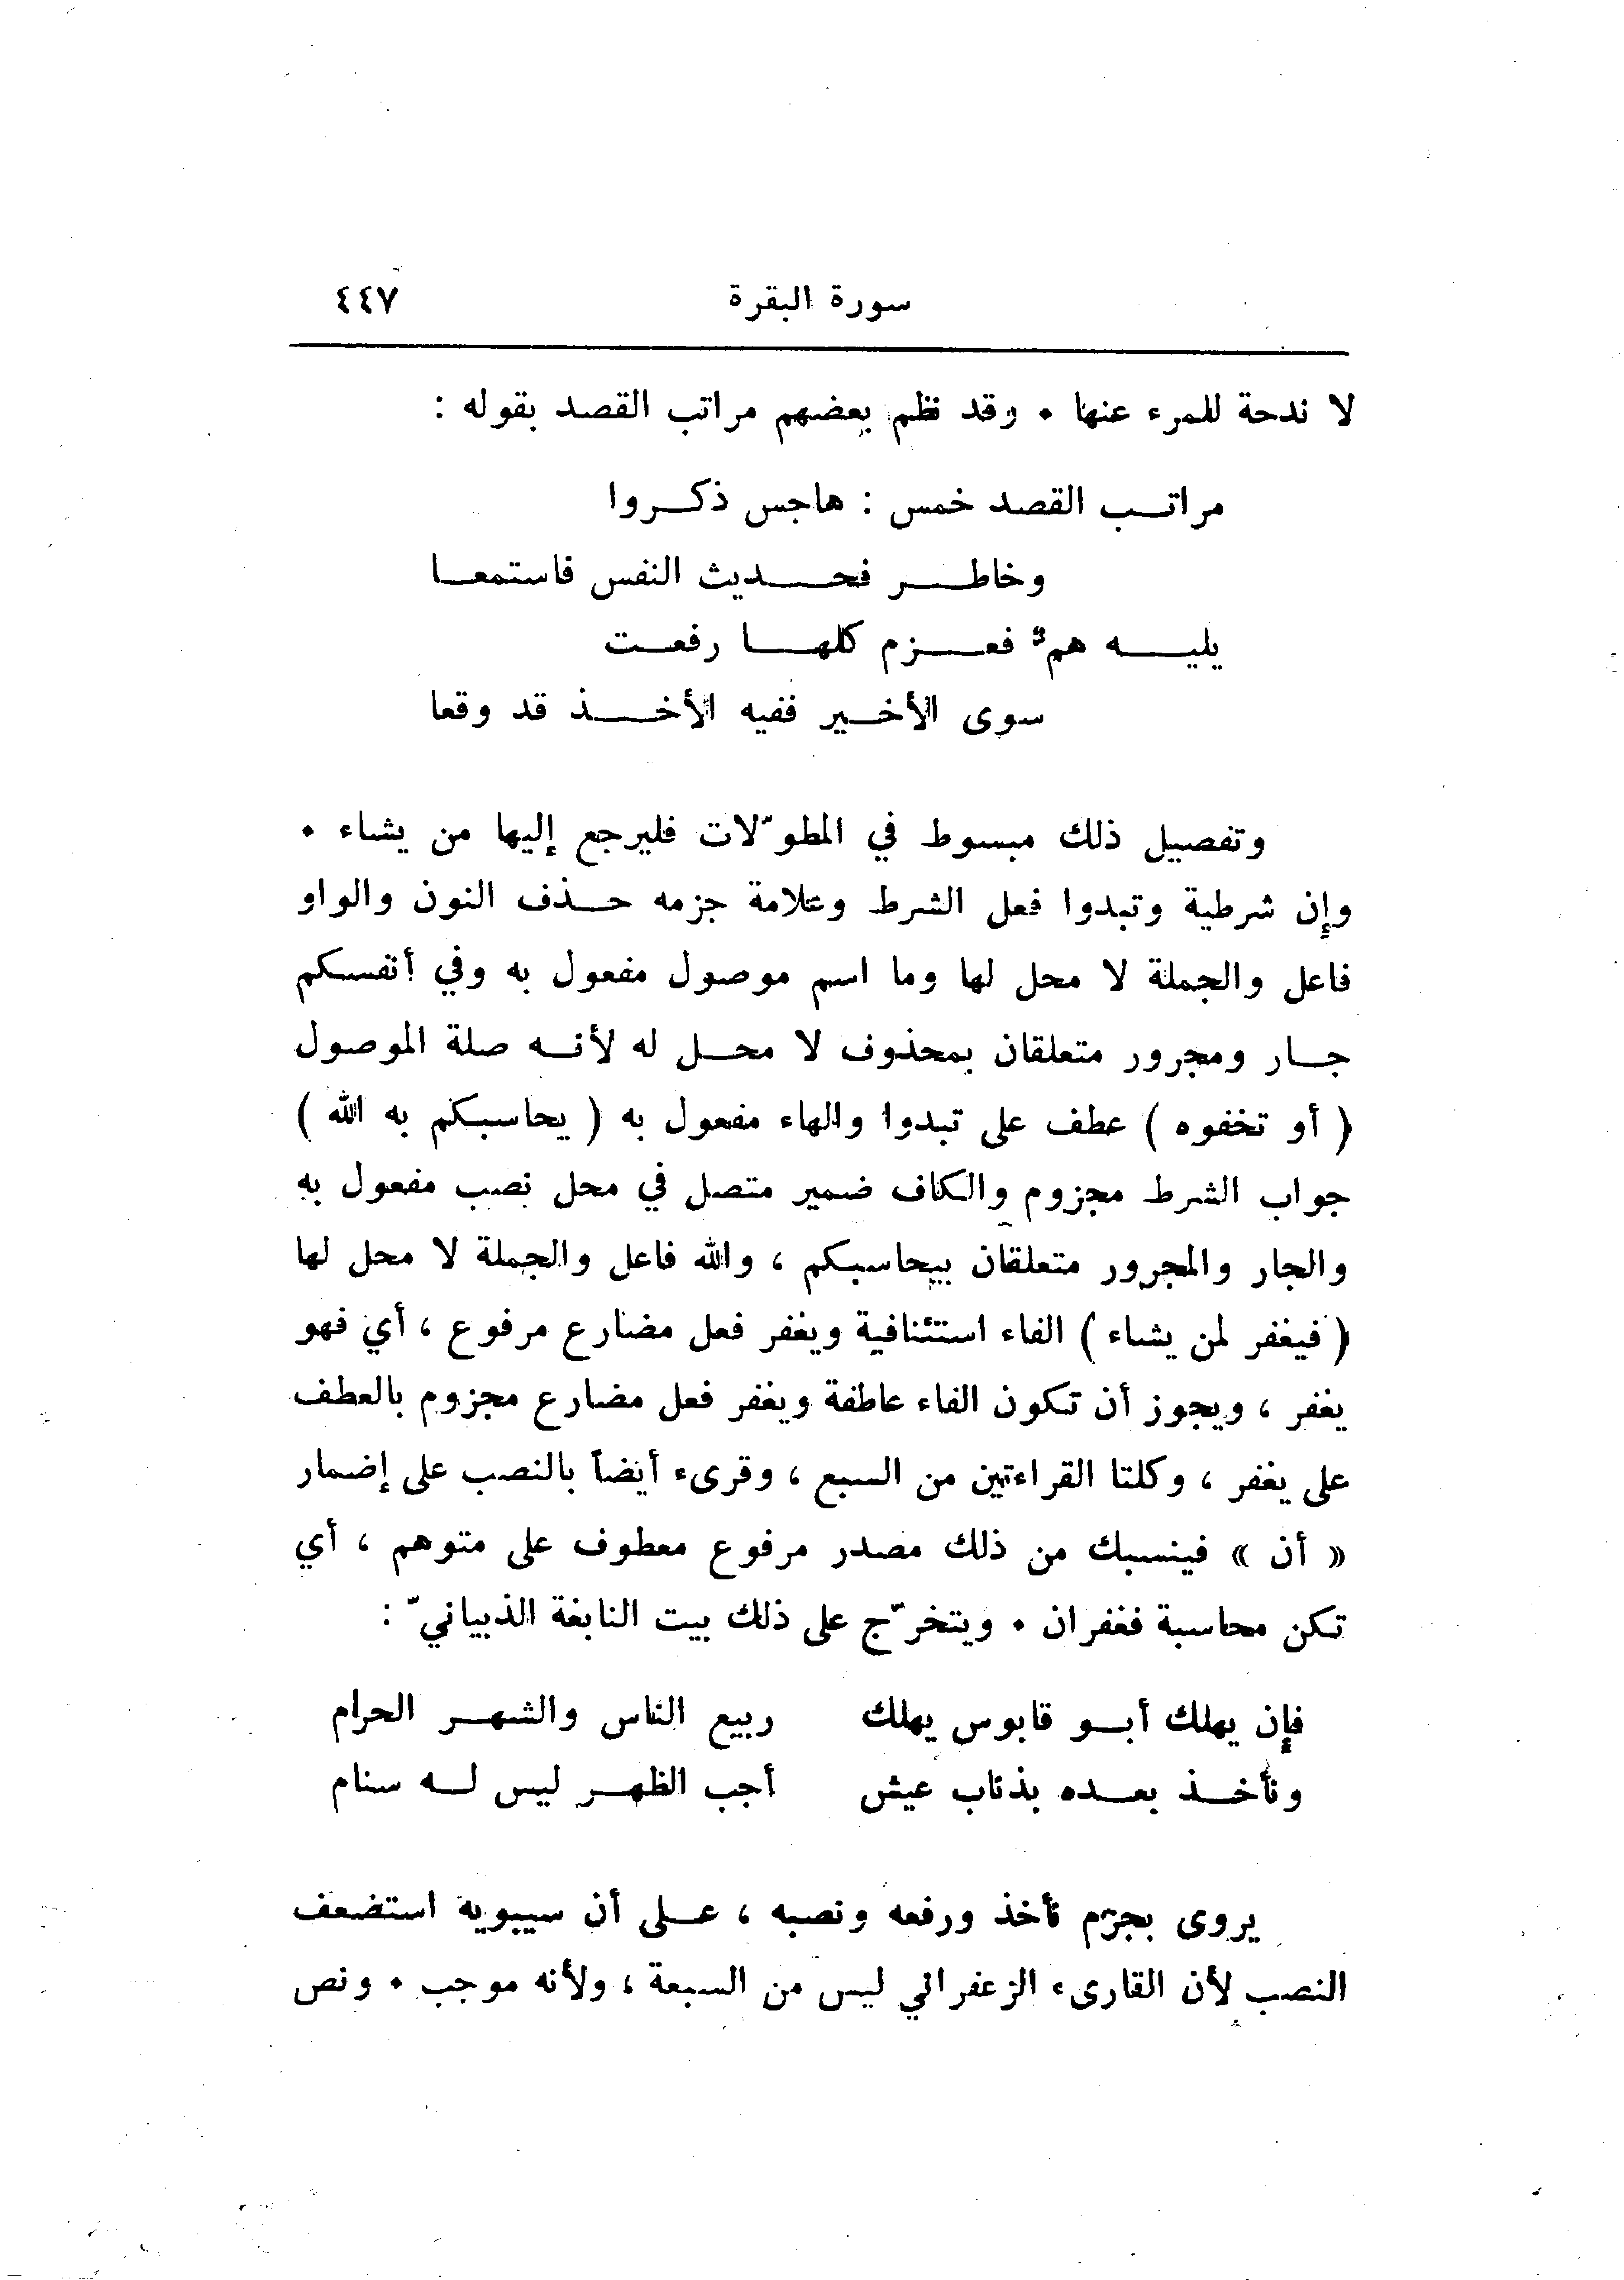 سورة البقرة ٤٤٧
لا ندحة للمرء عنها ٠ وقد نظم بعضهم مراتب القصد بقوله :
مراتب القصد خمس : هاجس ذكروا
وخاطر فحديث النفس فاستمعا
يليه همٌّ فعزم كلها رفعت
سوى الأخير ففيه الأخذ قد وقعا
وتفصيل ذلك مبسوط في المطوّلات فليرجع إليها من يشاء ٠
وإن شرطية وتبدوا فعل الشرط وعلامة جزمه حذف النون والواو
فاعل والجملة لا محل لها وما اسم موصول مفعول به وفي أنفسكم
جار ومجرور متعلقان بمحذوف لا محل له لأنه صلة الموصول
( أو تخفوه ) عطف على تبدوا والهاء مفعول به ( يحاسبكم به الله )
جواب الشرط مجزوم والكاف ضمير متصل في محل نصب مفعول به
والجار والمجرور متعلقان بيحاسبكم ، والله فاعل والجملة لا محل لها
( فيغفر لمن يشاء ) الفاء استئنافية ويغفر فعل مضارع مرفوع ، أي فهو
يغفر ، ويجوز أن تكون الفاء عاطفة ويغفر فعل مضارع مجزوم بالعطف
على يغفر ، وكلتا القراءتين من السبع ، وقرىء أيضاً بالنصب على إضمار
« أن » فينسبك من ذلك مصدر مرفوع معطوف على متوهم ، أي
تكن محاسبة فغفران ٠ ويتخرّج على ذلك بيت النابغة الذبيانيّ :
فإن يهلك أبو قابوس يهلك ربيع الناس والشهر الحرام
ونأخذ بعده بذناب عيش أجب الظهر ليس له سنام
يروى بجزم نأخذ ورفعه ونصبه ، على أن سيبويه استضعف
النصب لأن القارىء الزعفراني ليس من السبعة ، ولأنه موجب ٠ ونص